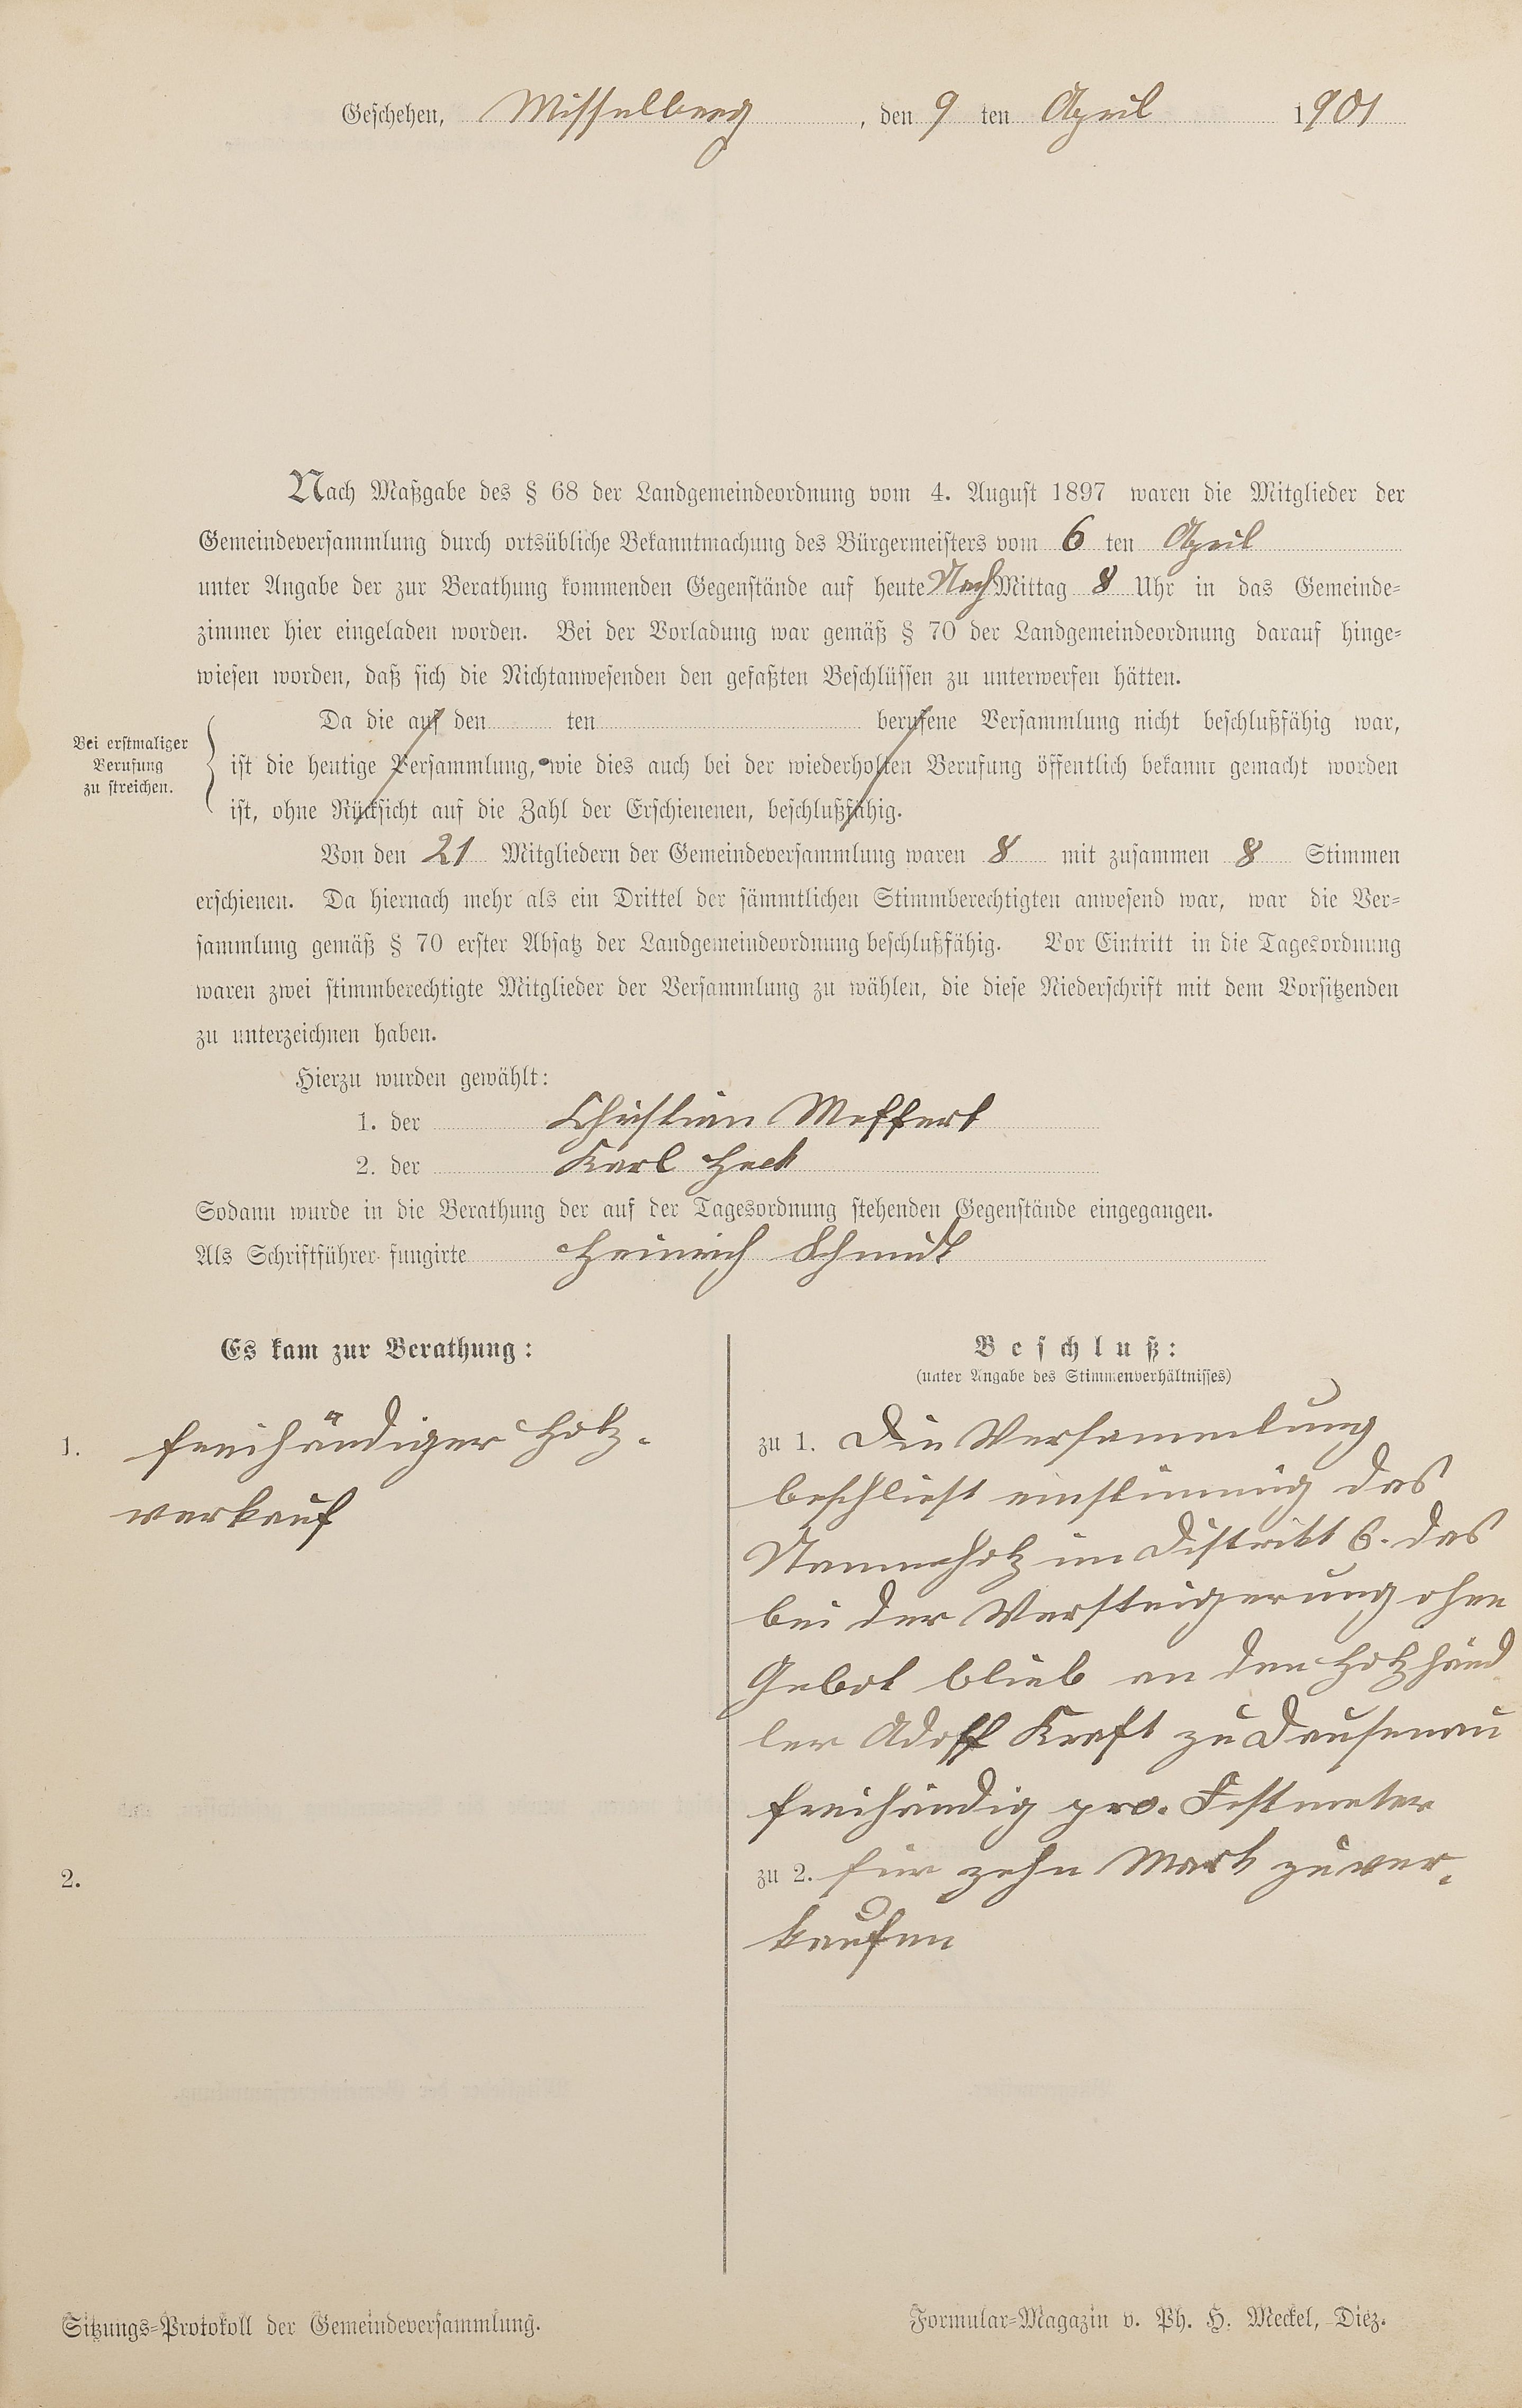 Geschehen, Misselberg, den 9 ten April 1901
Nach Maßgabe des § 68 der Landgemeindeordnung vom 4. August 1897 waren die Mitglieder der
Gemeindeversammlung durch ortsübliche Bekanntmachung des Bürgermeisters vom 6 ten April
unter Angabe der zur Berathung kommenden Gegenstände auf heute Nach Mittag 8 Uhr in das Gemeinde-
zimmer hier eingeladen worden. Bei der Vorladung war gemäß § 70 der Landgemeindeordnung darauf hinge-
wiesen worden, daß sich die Nichtanwesenden den gefaßten Beschlüssen zu unterwerfen hätten.
Bei erstmaliger
Berufung
zu streichen.
Da die auf den ten berufene Versammlung nicht beschlußfähig war,
ist die heutige Versammlung, wie dies auch bei der wiederholten Berufung öffentlich bekannt gemacht worden
ist, ohne Rücksicht auf die Zahl der Erschienenen, beschlußfähig.
Von den 21 Mitgliedern der Gemeindeversammlung waren 8 mit zusammen 8 Stimmen
erschienen. Da hiernach mehr als ein Drittel der sämmtlichen Stimmberechtigten anwesend war, war die Ver-
sammlung gemäß § 70 erster Absatz der Landgemeindeordnung beschlußfähig. Vor Eintritt in die Tagesordnung
waren zwei stimmberechtigte Mitglieder der Versammlung zu wählen, die diese Niederschrift mit dem Vorsitzenden
zu unterzeichnen haben.
Hierzu wurden gewählt:
1. der Christian Meffert
2. der Karl Heck
Sodann wurde in die Berathung der auf der Tagesordnung stehenden Gegenstände eingegangen.
Als Schriftführer fungirte Heinrich Schmidt
Es kam zur Berathung:
1. freihändiger Holz-
verkauf
2.
Beschluß:
(unter Angabe des Stimmenverhältnisses)
zu 1. Die Versammlung
beschliest einstimmig das
Stammholz im Distrikt 6. das
bei der Versteigerung ohne
Gebot blieb an den Holzhänd
ler Adolf Kraft zu Dausenau
freihändig pro. Festmeter
zu 2. für zehn Mark zu ver-
kaufen
Sitzungs-Protokoll der Gemeindeversammlung.
Formular-Magazin v. Ph. H. Meckel, Diez.